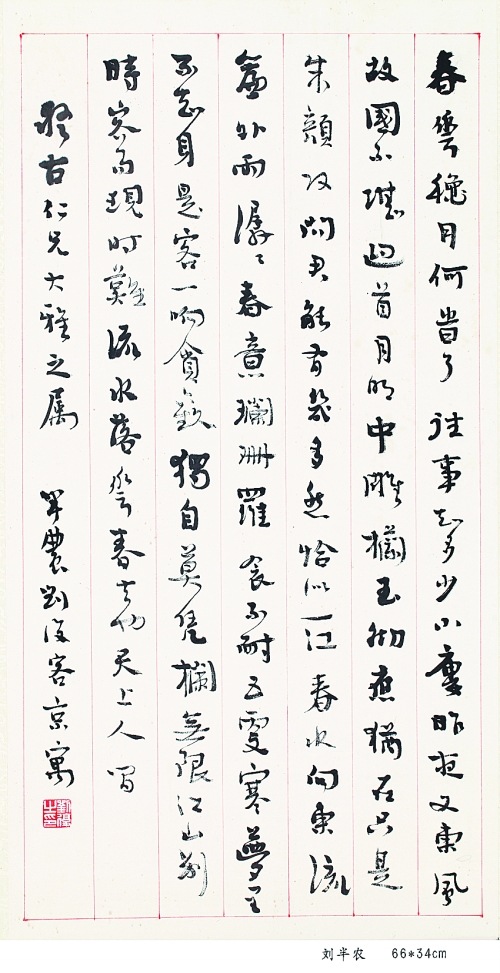 春花穐月何旹了往事知多少小廔昨夜又東風
故國不堪迴首月明中雕欄玉砌應猶在只是
朱顏改問君能有幾多愁恰似一江春水向東流
簾外雨潺〻春意瓓珊羅衾不耐五更寒夢里
不知身是客一晌貪歡獨自莫凭欄無限江山別
時容易現时難流水落花春去也天上人間
疑古仁兄大雅之属 半農劉復客京寓
劉復之印
刘半农 66*34cm